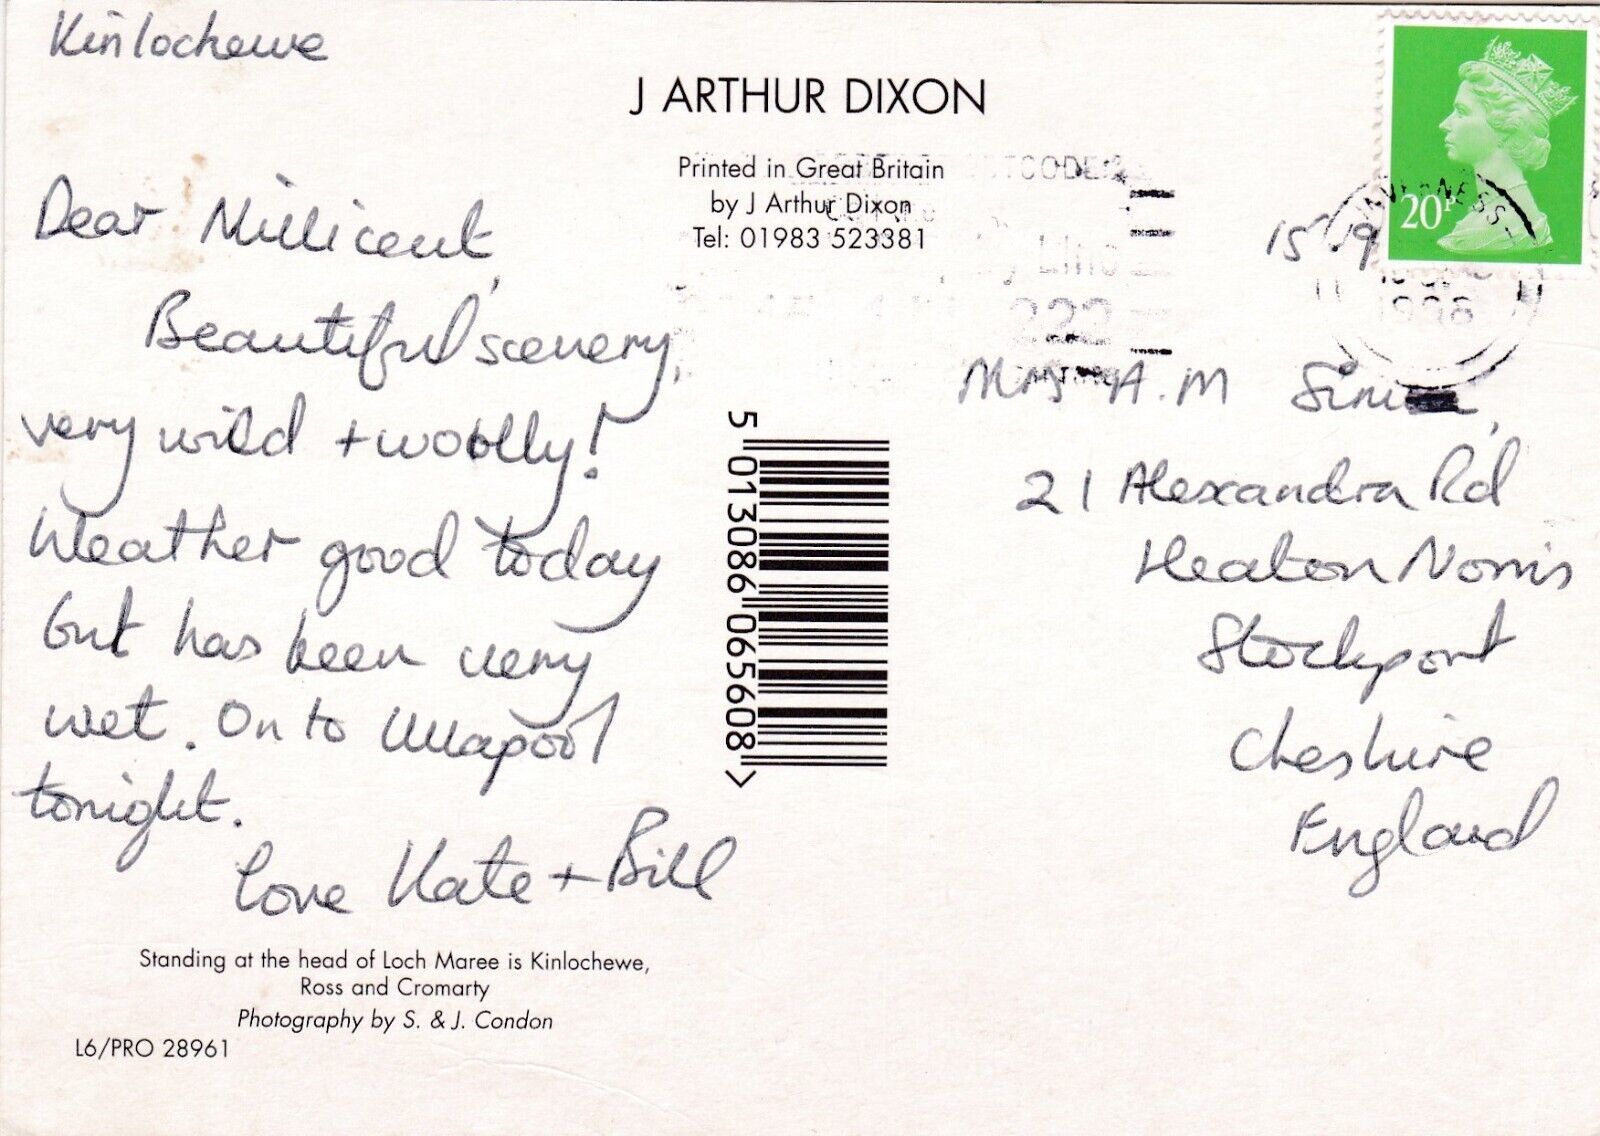 Kinlochewe
J ARTHUR DIXON
Printed in Great Britain
by J Arthur Dixon
Tel: 01983 523381
Dear Millicent,
Beautiful scenery,
very wild + woolly!
Weather good today
but has been very
wet. On to Ullapool
tonight.
Love Kate + Bill
Standing at the head of Loch Maree is Kinlochewe,
Ross and Cromarty
Photography by S. & J. Condon
L6/PRO 28961
5 013086 065608 >
20P
INVERNESS
1998
222
15
Mrs A.M
21 Alexandra Rd
Heaton Norris
Stockport
Cheshire
England